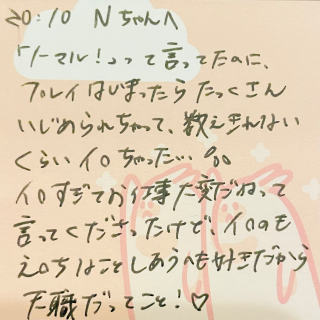 20:10 Nちゃんへ
「ノーマル!」って言ってたのに、
プレイはじまったらたっくさん
いじめられちゃって、数えきれない
くらいイロちゃった…
イロすぎてお仕事大変だねって
言ってくださったけど、イロのも
え〇ちなことしあうのも好きだから
天職だってこと!♡